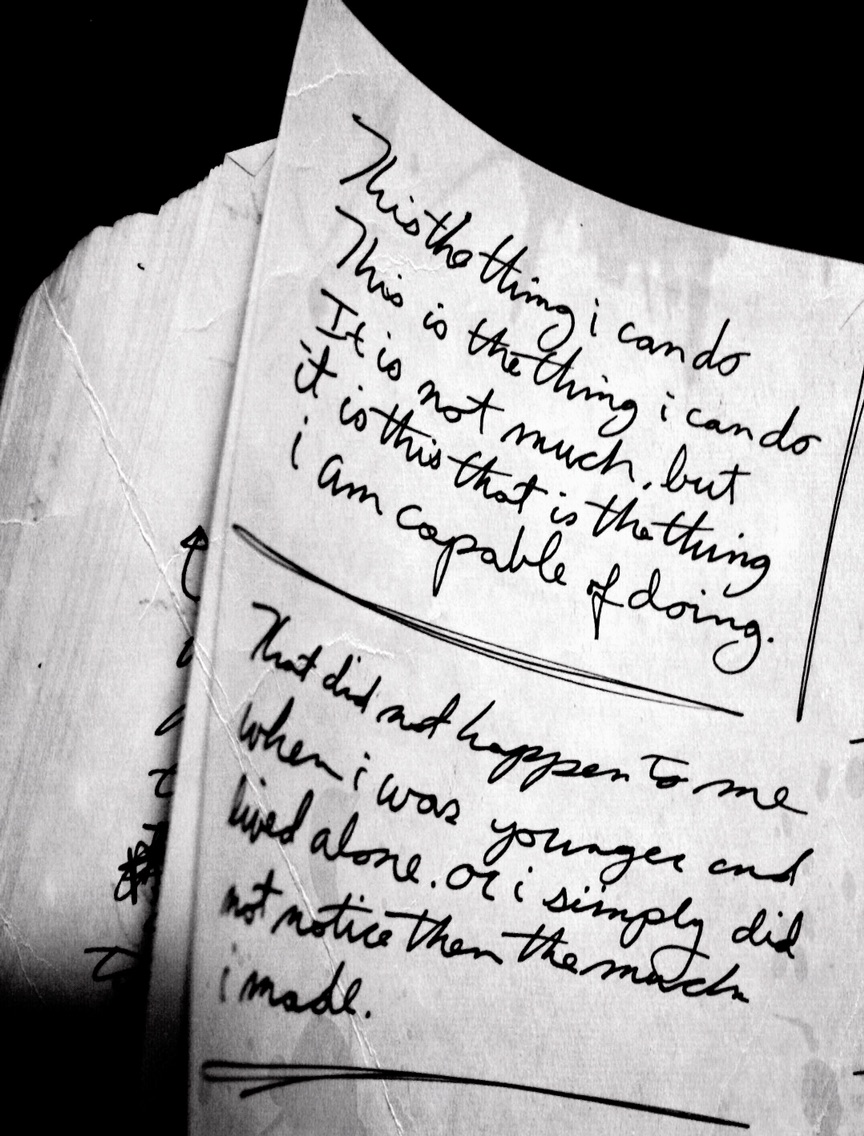 This the thing i can do
This is the thing i can do
It is not much, but
it is this that is the thing
i am capable of doing.
That did not happen to me
when i was younger and
lived alone. or i simply did
not notice then the much
i made.